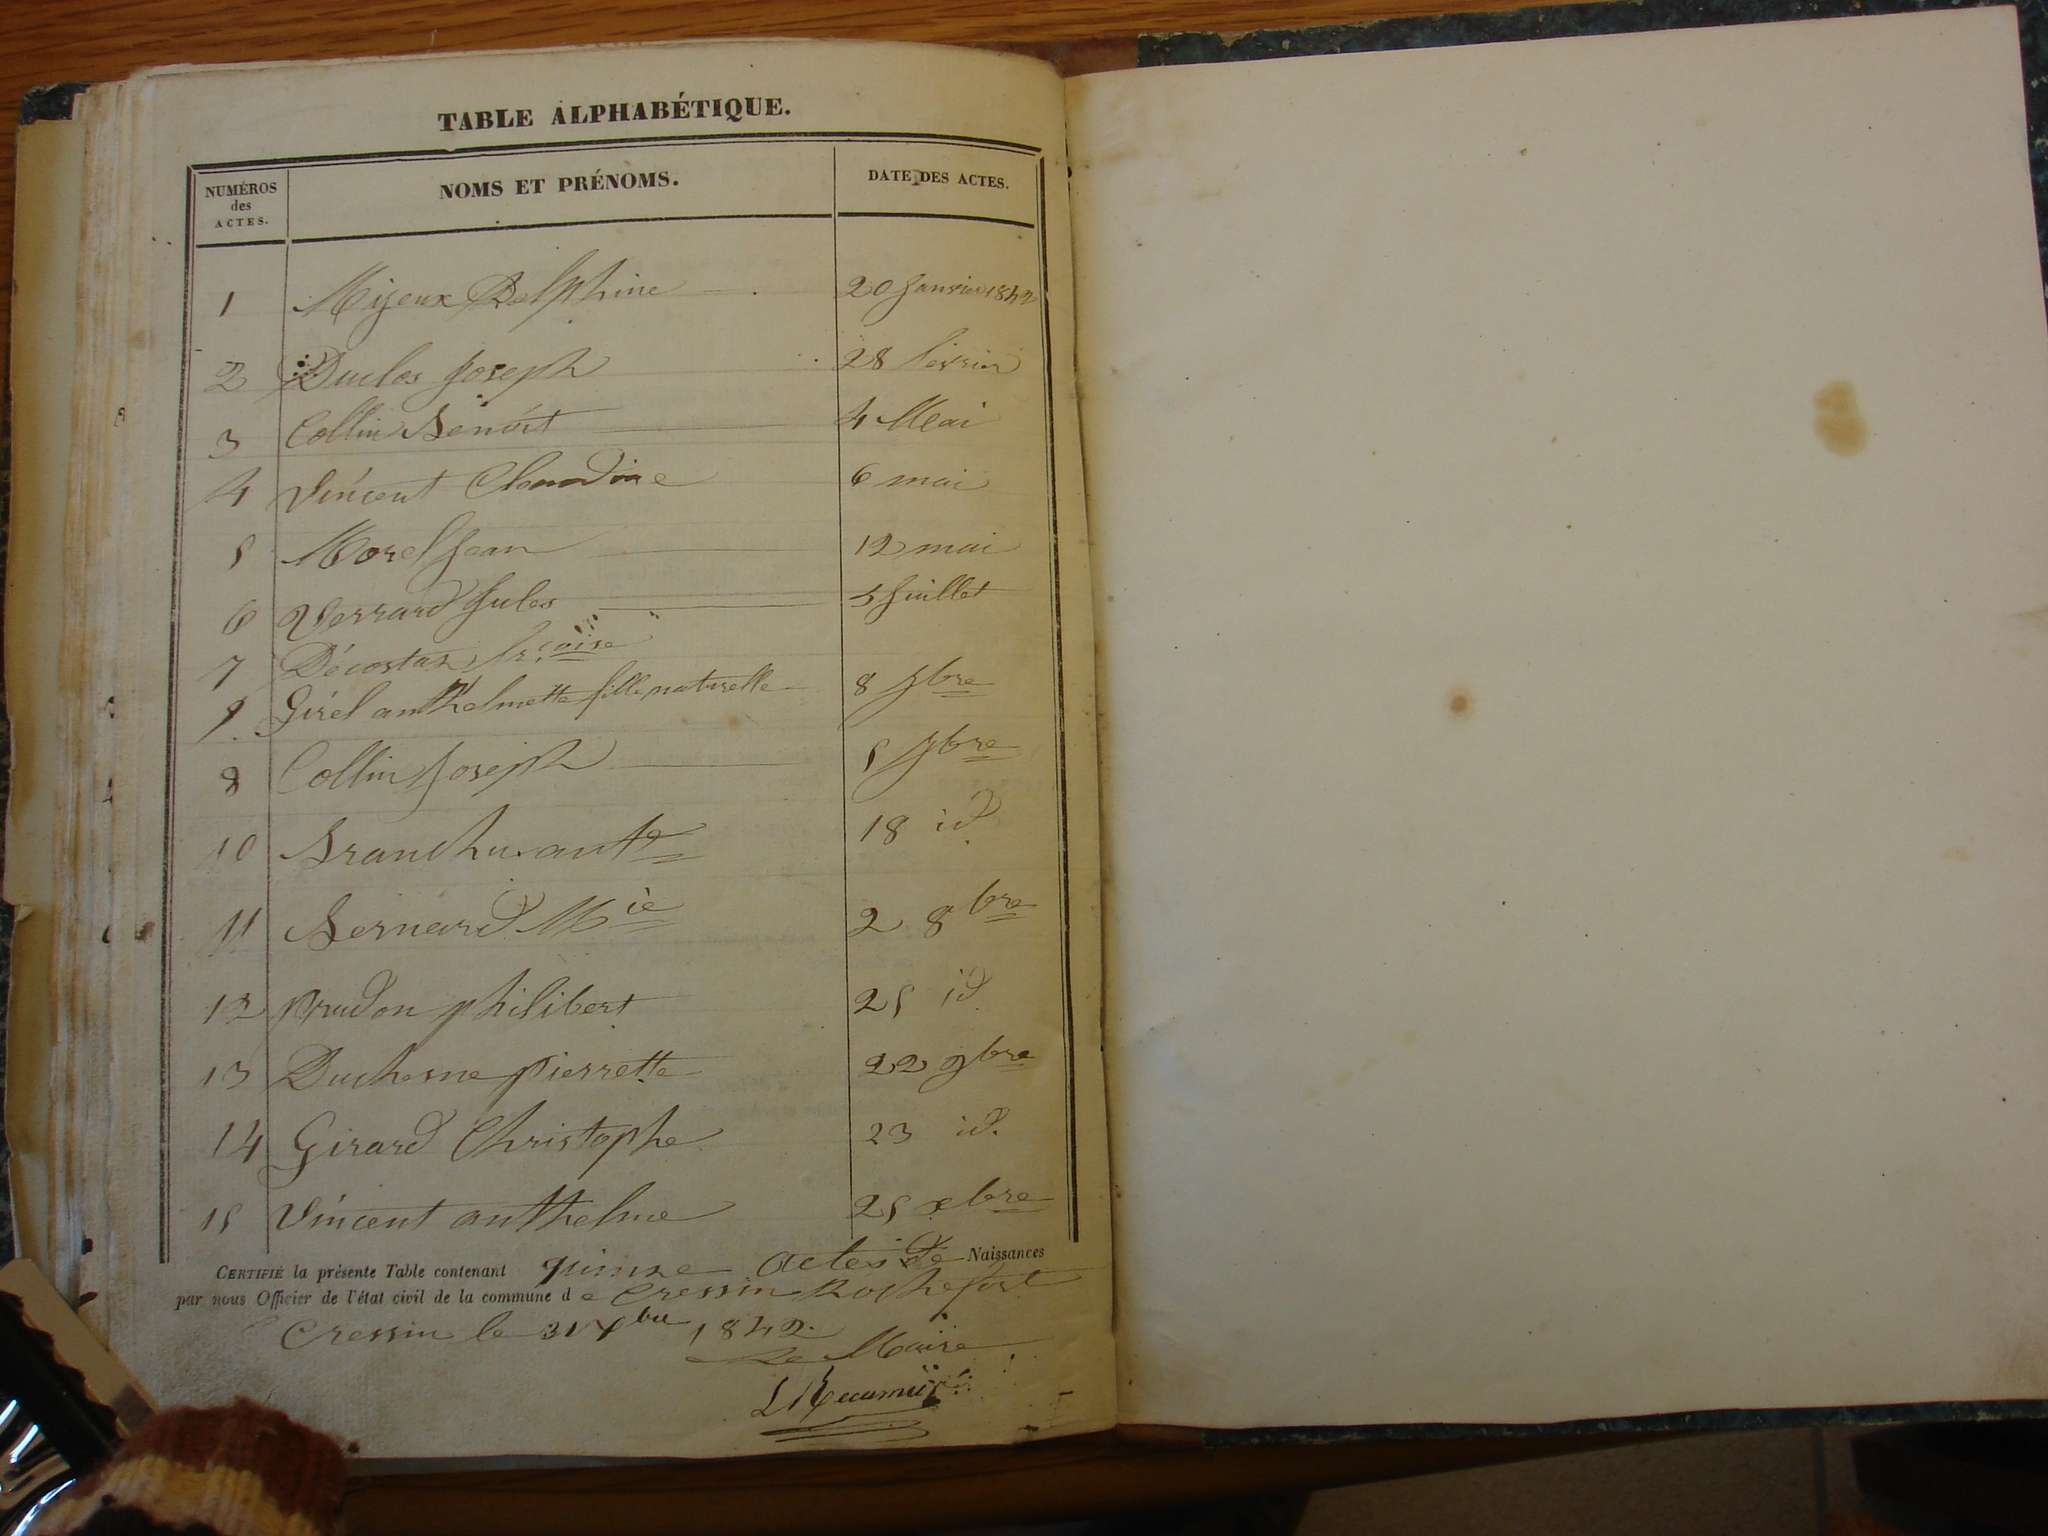 TABLE ALPHABÉTIQUE.
NUMÉROS des ACTES. NOMS ET PRÉNOMS. DATE DES ACTES.
1 Mijeux Delphine 20 Janvier 1842
2 Duclos Joseph 28 février
3 Collin Benoit 4 Mai
4 Vincent Claudine 6 mai
5 Morel Jean 12 mai
6 Verrard Jules 5 Juillet
7 Décostaz fr.çoise
9 Girel anthelmette fille naturelle 8 7bre
8 Collin Joseph 5 7bre
10 ante 18 id
11 Bernard Mie 2 8bre
12 Prudon philibert 25 id
13 Duchesne pierrette 22 9bre
14 Girard Christophe 23 id.
15 Vincent anthelme 25 xbre
CERTIFIÉ la présente Table contenant quinze actes de Naissances
par nous Officier de l'état civil de la commune de Cressin Rochefort
Cressin le 31 Xbre 1842.
Le Maire